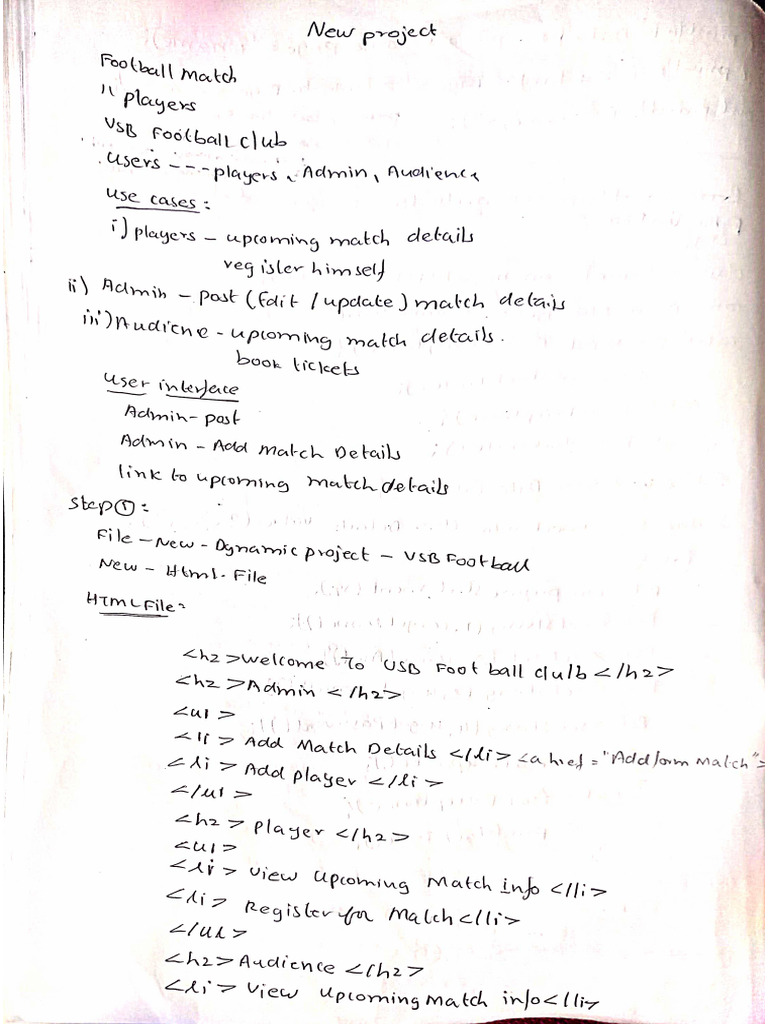 New project
Football Match
11 players
VSB Football club
Users --- players, Admin, Audience
Use cases:
i) players - upcoming match details
register himself
ii) Admin - post (Edit / update) match details
iii) Audiene - upcoming match details.
book tickets
User interface
Admin - post
Admin - Add Match Details
link to upcoming match details
Step ①:
File - New - Dynamic project - VSB Football
New - Html - File
HTML File:
<h2>Welcome To VSB Foot ball clulb </h2>
<h2>Admin </h2>
<ul>
<li> Add Match Details </li> <a href = "Add form Match">
<li> Add player </li>
</ul>
<h2> player </h2>
<ul>
<li> View Upcoming Match info </li>
<li> Register for Match </li>
</ul>
<h2> Audience </h2>
<li> View Upcoming Match info </li>